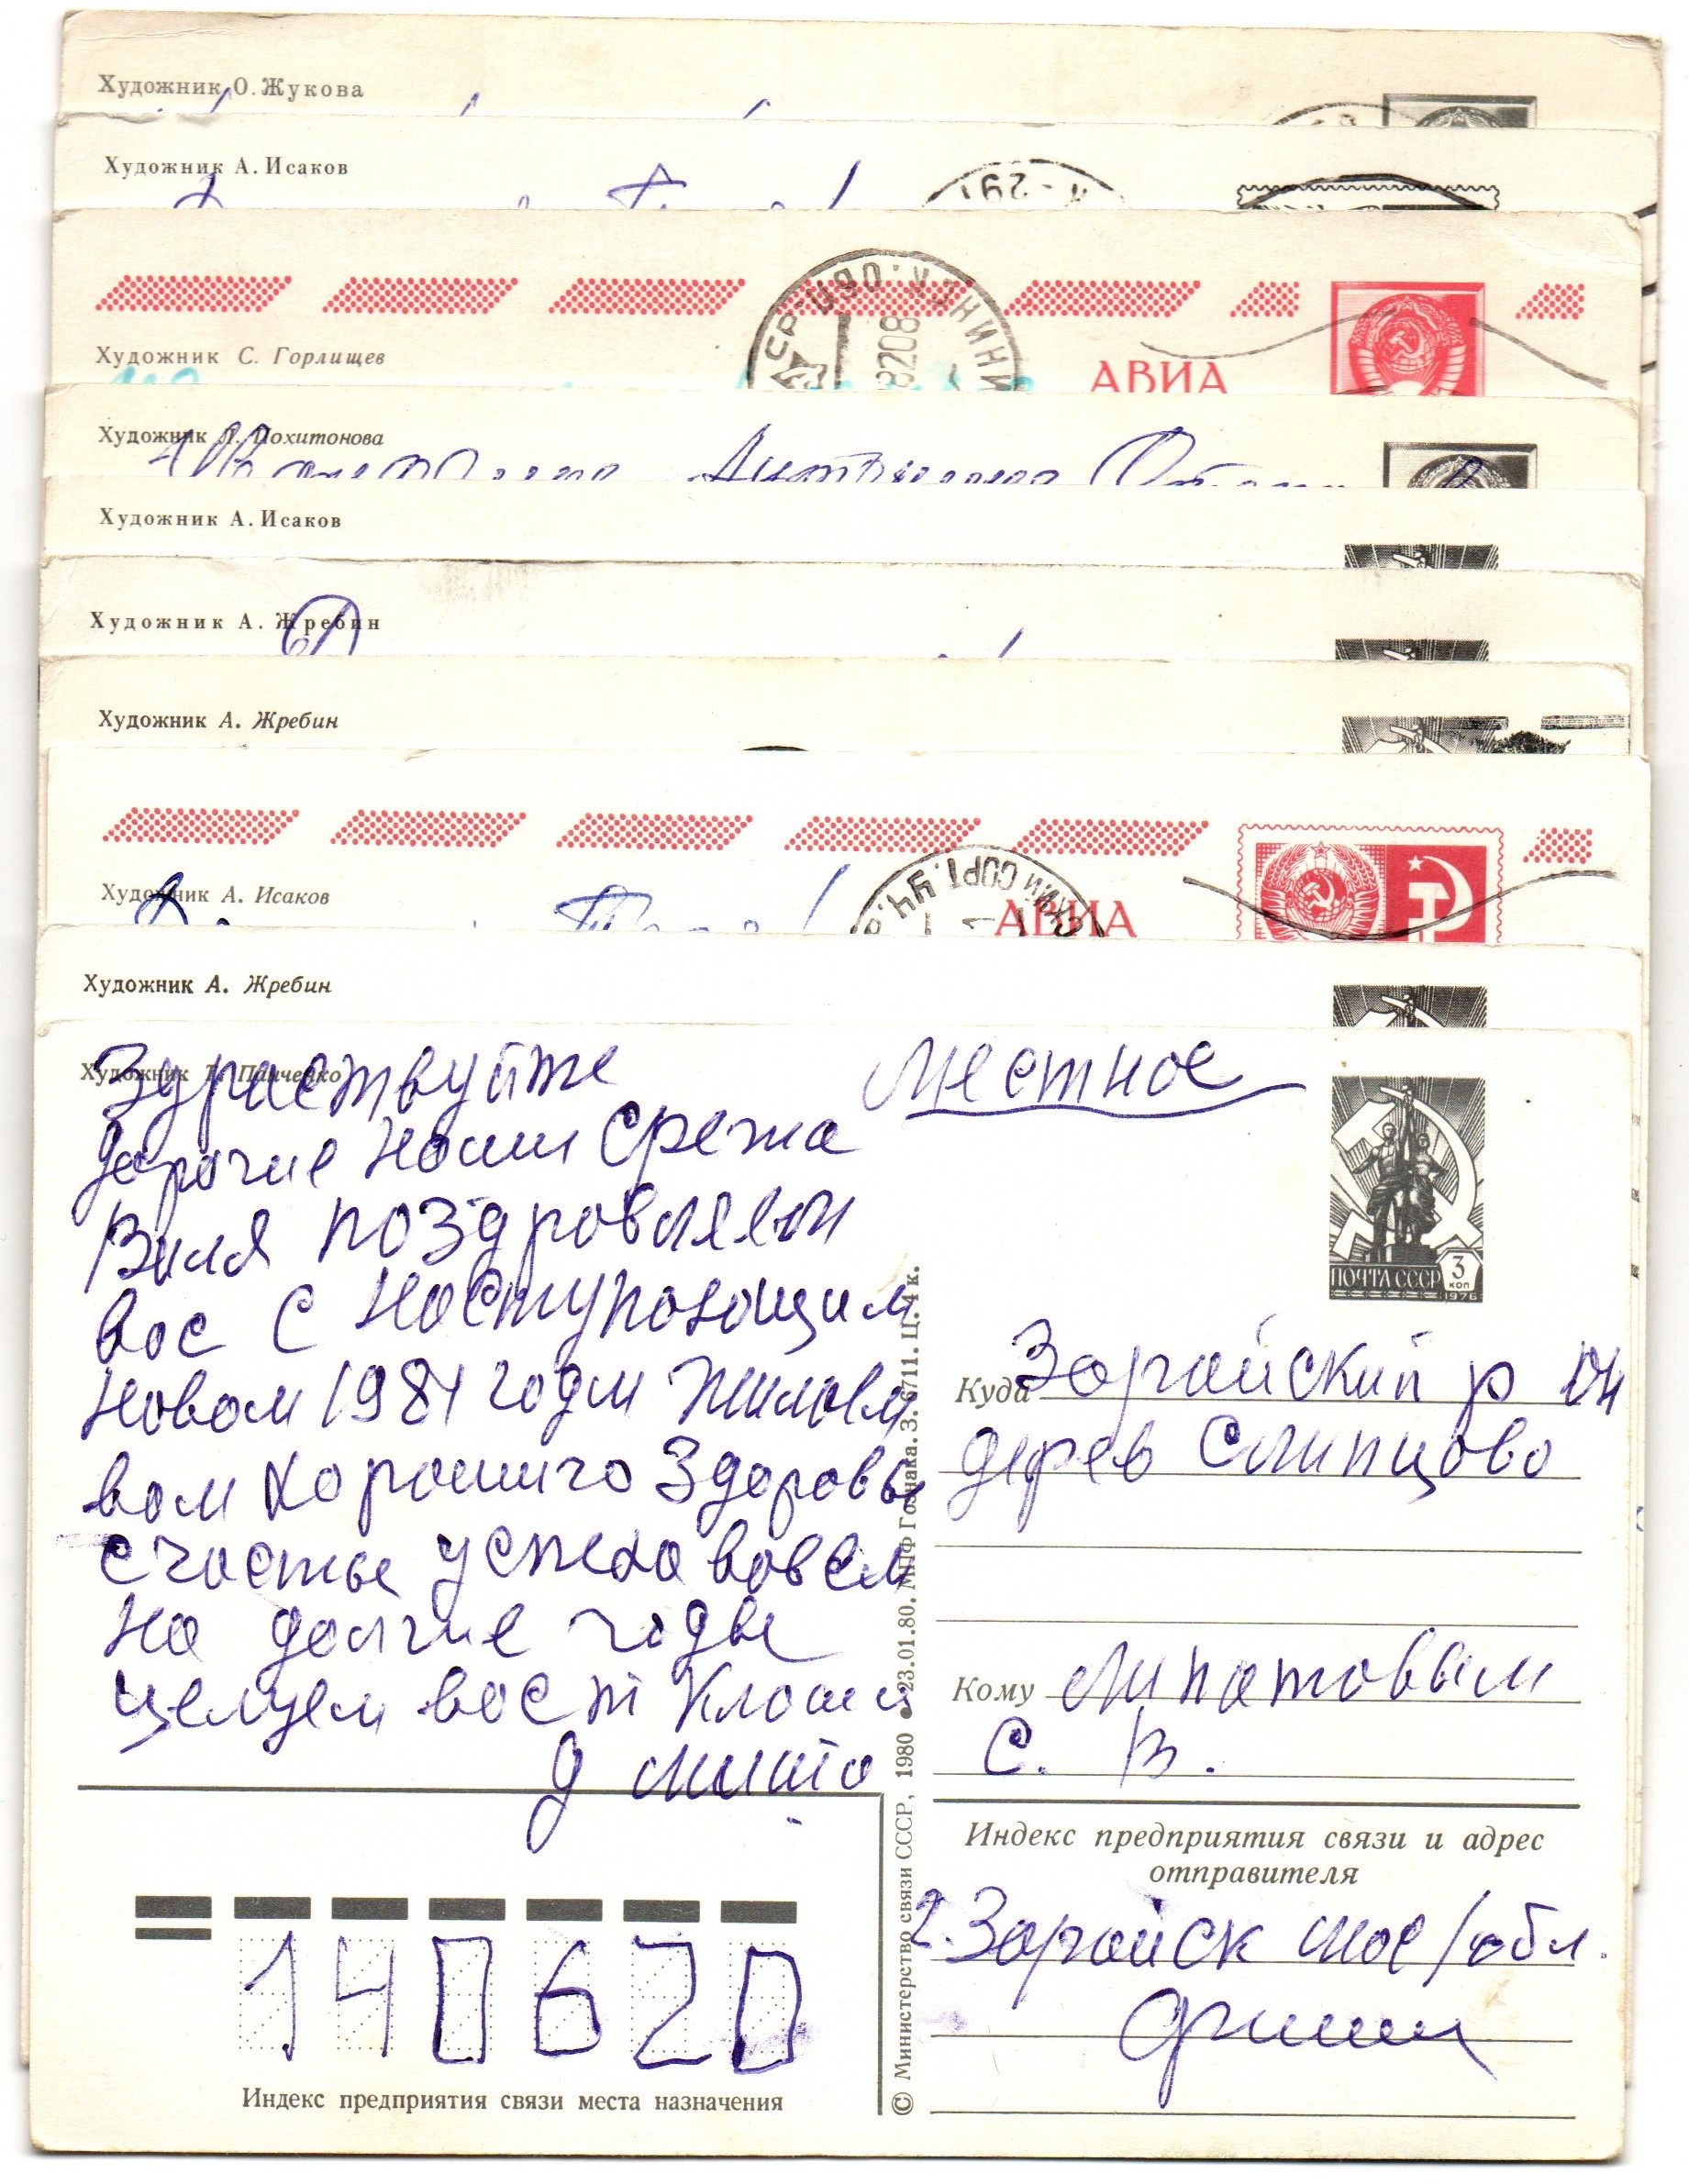 Художник О. Жукова
Художник А. Исаков
Художник С. Горлищев
АВИА
Художник Похитонова
Художник А. Исаков
Художник А. Жребин
Художник А. Жребин
АВИА
Художник А. Исаков
Художник А. Жребин
Художник Панченко
Здраствуйте
дорогие Наши Срежа
Виля поздровляем
вос с Носتупоющим
Новом 1981 годм Жилоем
вом Хорошиго Здоровь
счостье успехо вовсем
но долгие годы
целуем вос т Клоши
д миша
Местное
ПОЧТА СССР 3 коп 1976
Куда Зорайский р он
дерев Слипцово
Кому Липотовым
С. В.
Индекс предприятия связи и адрес
отправителя
г. Зорайск мос/обл.
140620
Индекс предприятия связи места назначения
© Министерство связи СССР, 1980 23.01.80. МПФ Гознака. З. 6711. Ц. 4 к.